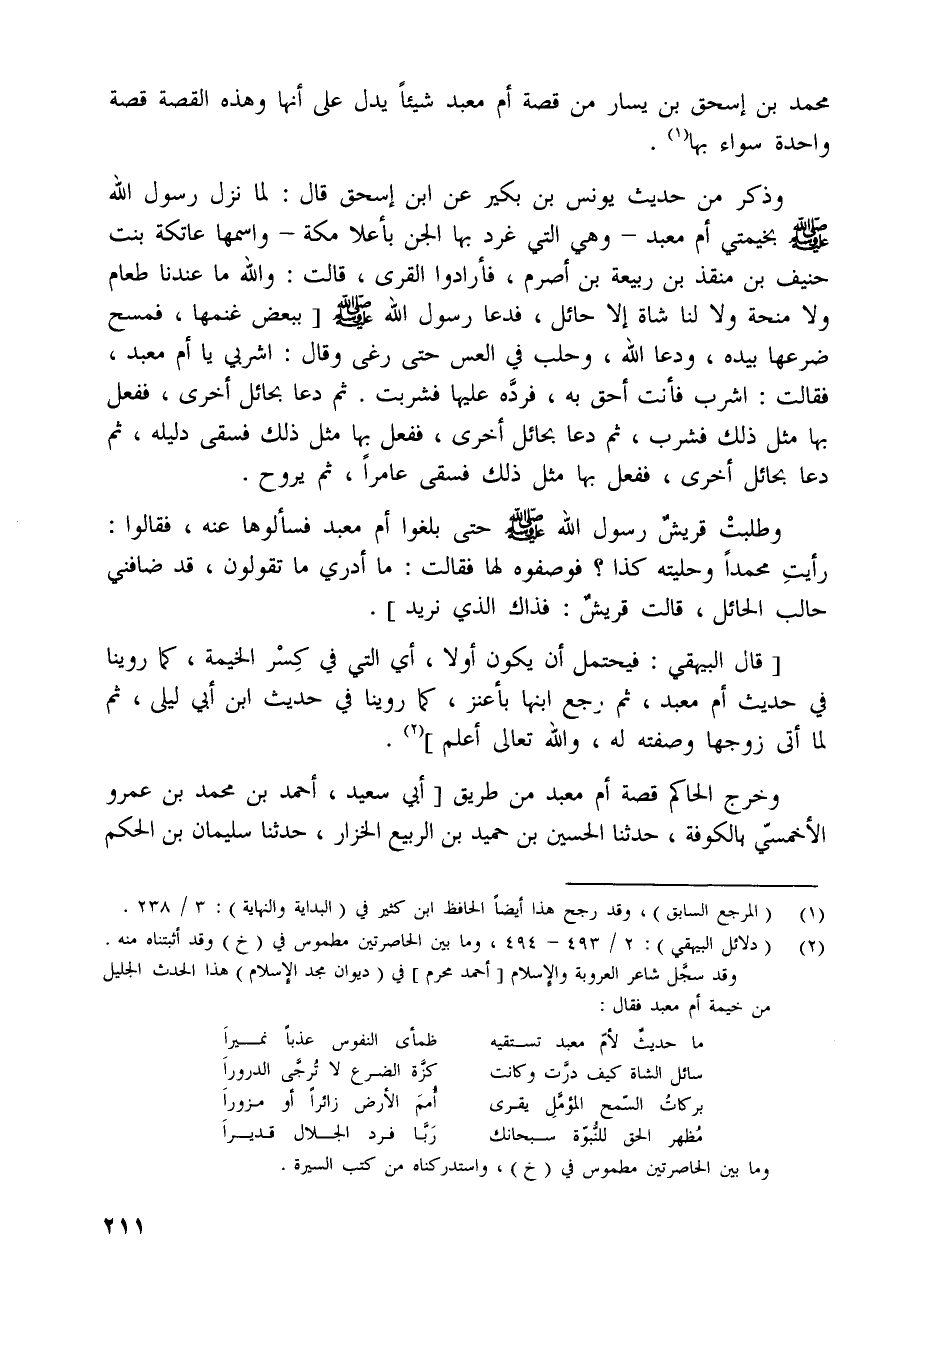 محمد بن إسحق بن يسار من قصة أم معبد شيئاً يدل على أنها وهذه القصة قصة
واحدة سواء بها(١) .
وذكر من حديث يونس بن بكير عن ابن إسحق قال : لما نزل رسول الله
ﷺ بخيمتي أم معبد – وهي التي غرد بها الجن بأعلا مكة – واسمها عاتكة بنت
حنيف بن منقذ بن ربيعة بن أصرم ، فأرادوا القرى ، قالت : والله ما عندنا طعام
ولا منحة ولا لنا شاة إلا حائل ، فدعا رسول الله ﷺ [ ببعض غنمها ، فمسح
ضرعها بيده ، ودعا الله ، وحلب في العس حتى رغى وقال : اشربي يا أم معبد ،
فقالت : اشرب فأنت أحق به ، فردَّه عليها فشربت . ثم دعا بحائل أخرى ، ففعل
بها مثل ذلك فشرب ، ثم دعا بحائل أخرى ، ففعل بها مثل ذلك فسقى دليله ، ثم
دعا بحائل أخرى ، ففعل بها مثل ذلك فسقى عامراً ، ثم يروح .
وطلبتْ قريشٌ رسول الله ﷺ حتى بلغوا أم معبد فسألوها عنه ، فقالوا :
رأيتِ محمداً وحليته كذا ؟ فوصفوه لها فقالت : ما أدري ما تقولون ، قد ضافني
حالب الحائل ، قالت قريشٌ : فذاك الذي نريد ] .
[ قال البيهقي : فيحتمل أن يكون أولا ، أي التي في كِسْر الخيمة ، كما روينا
في حديث أم معبد ، ثم رجع ابنها بأعنز ، كما روينا في حديث ابن أبي ليلى ، ثم
لما أتى زوجها وصفته له ، والله تعالى أعلم ](٢) .
وخرج الحاكم قصة أم معبد من طريق [ أبي سعيد ، أحمد بن محمد بن عمرو
الأخمسيّ بالكوفة ، حدثنا الحسين بن حميد بن الربيع الخزار ، حدثنا سليمان بن الحكم
(١) ( المرجع السابق ) ، وقد رجح هذا أيضاً الحافظ ابن كثير في ( البداية والنهاية ) : ٣ / ٢٣٨ .
(٢) ( دلائل البيهقي ) : ٢ / ٤٩٣ – ٤٩٤ ، وما بين الحاصرتين مطموس في ( خ ) وقد أثبتناه منه .
وقد سجَّل شاعر العروبة والإسلام [ أحمد محرم ] في ( ديوان مجد الإسلام ) هذا الحدث الجليل
من خيمة أم معبد فقال :
ما حديثٌ لأمّ معبد تستقيه ظمأى النفوس عذباً نميراَ
سائل الشاة كيف درَّت وكانت كزَّة الضرع لا تُرجَّى الدروراَ
بركاتُ السّمح المؤمَّلِ يقرى أُممَ الأرض زائراً أو مزوراَ
مُظهر الحق للنُّبوّة سبحانك رَبَّا فرد الجلال قديراَ
وما بين الحاصرتين مطموس في ( خ ) ، واستدركناه من كتب السيرة .
٢١١